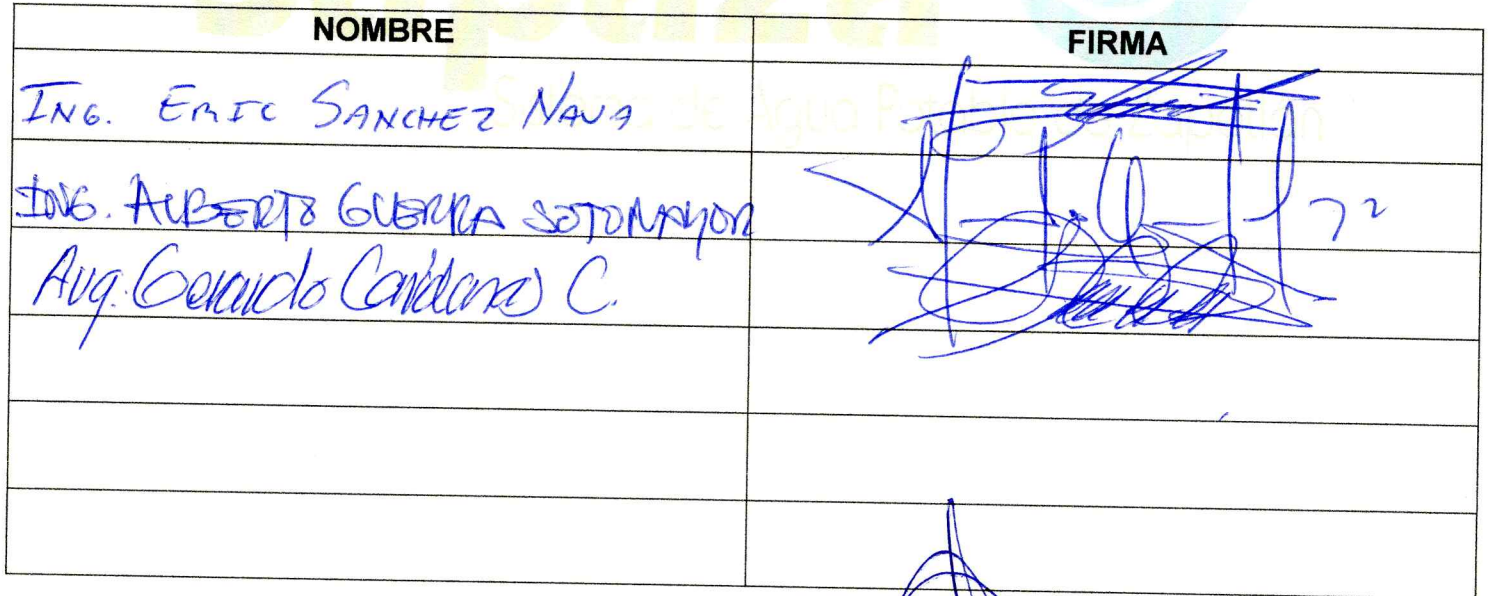 NOMBRE FIRMA
ING. ERIC SANCHEZ NAVA
ING. ALBERTO GUERRA SOTOMAYOR
Arq. Gerardo Cardenas C.